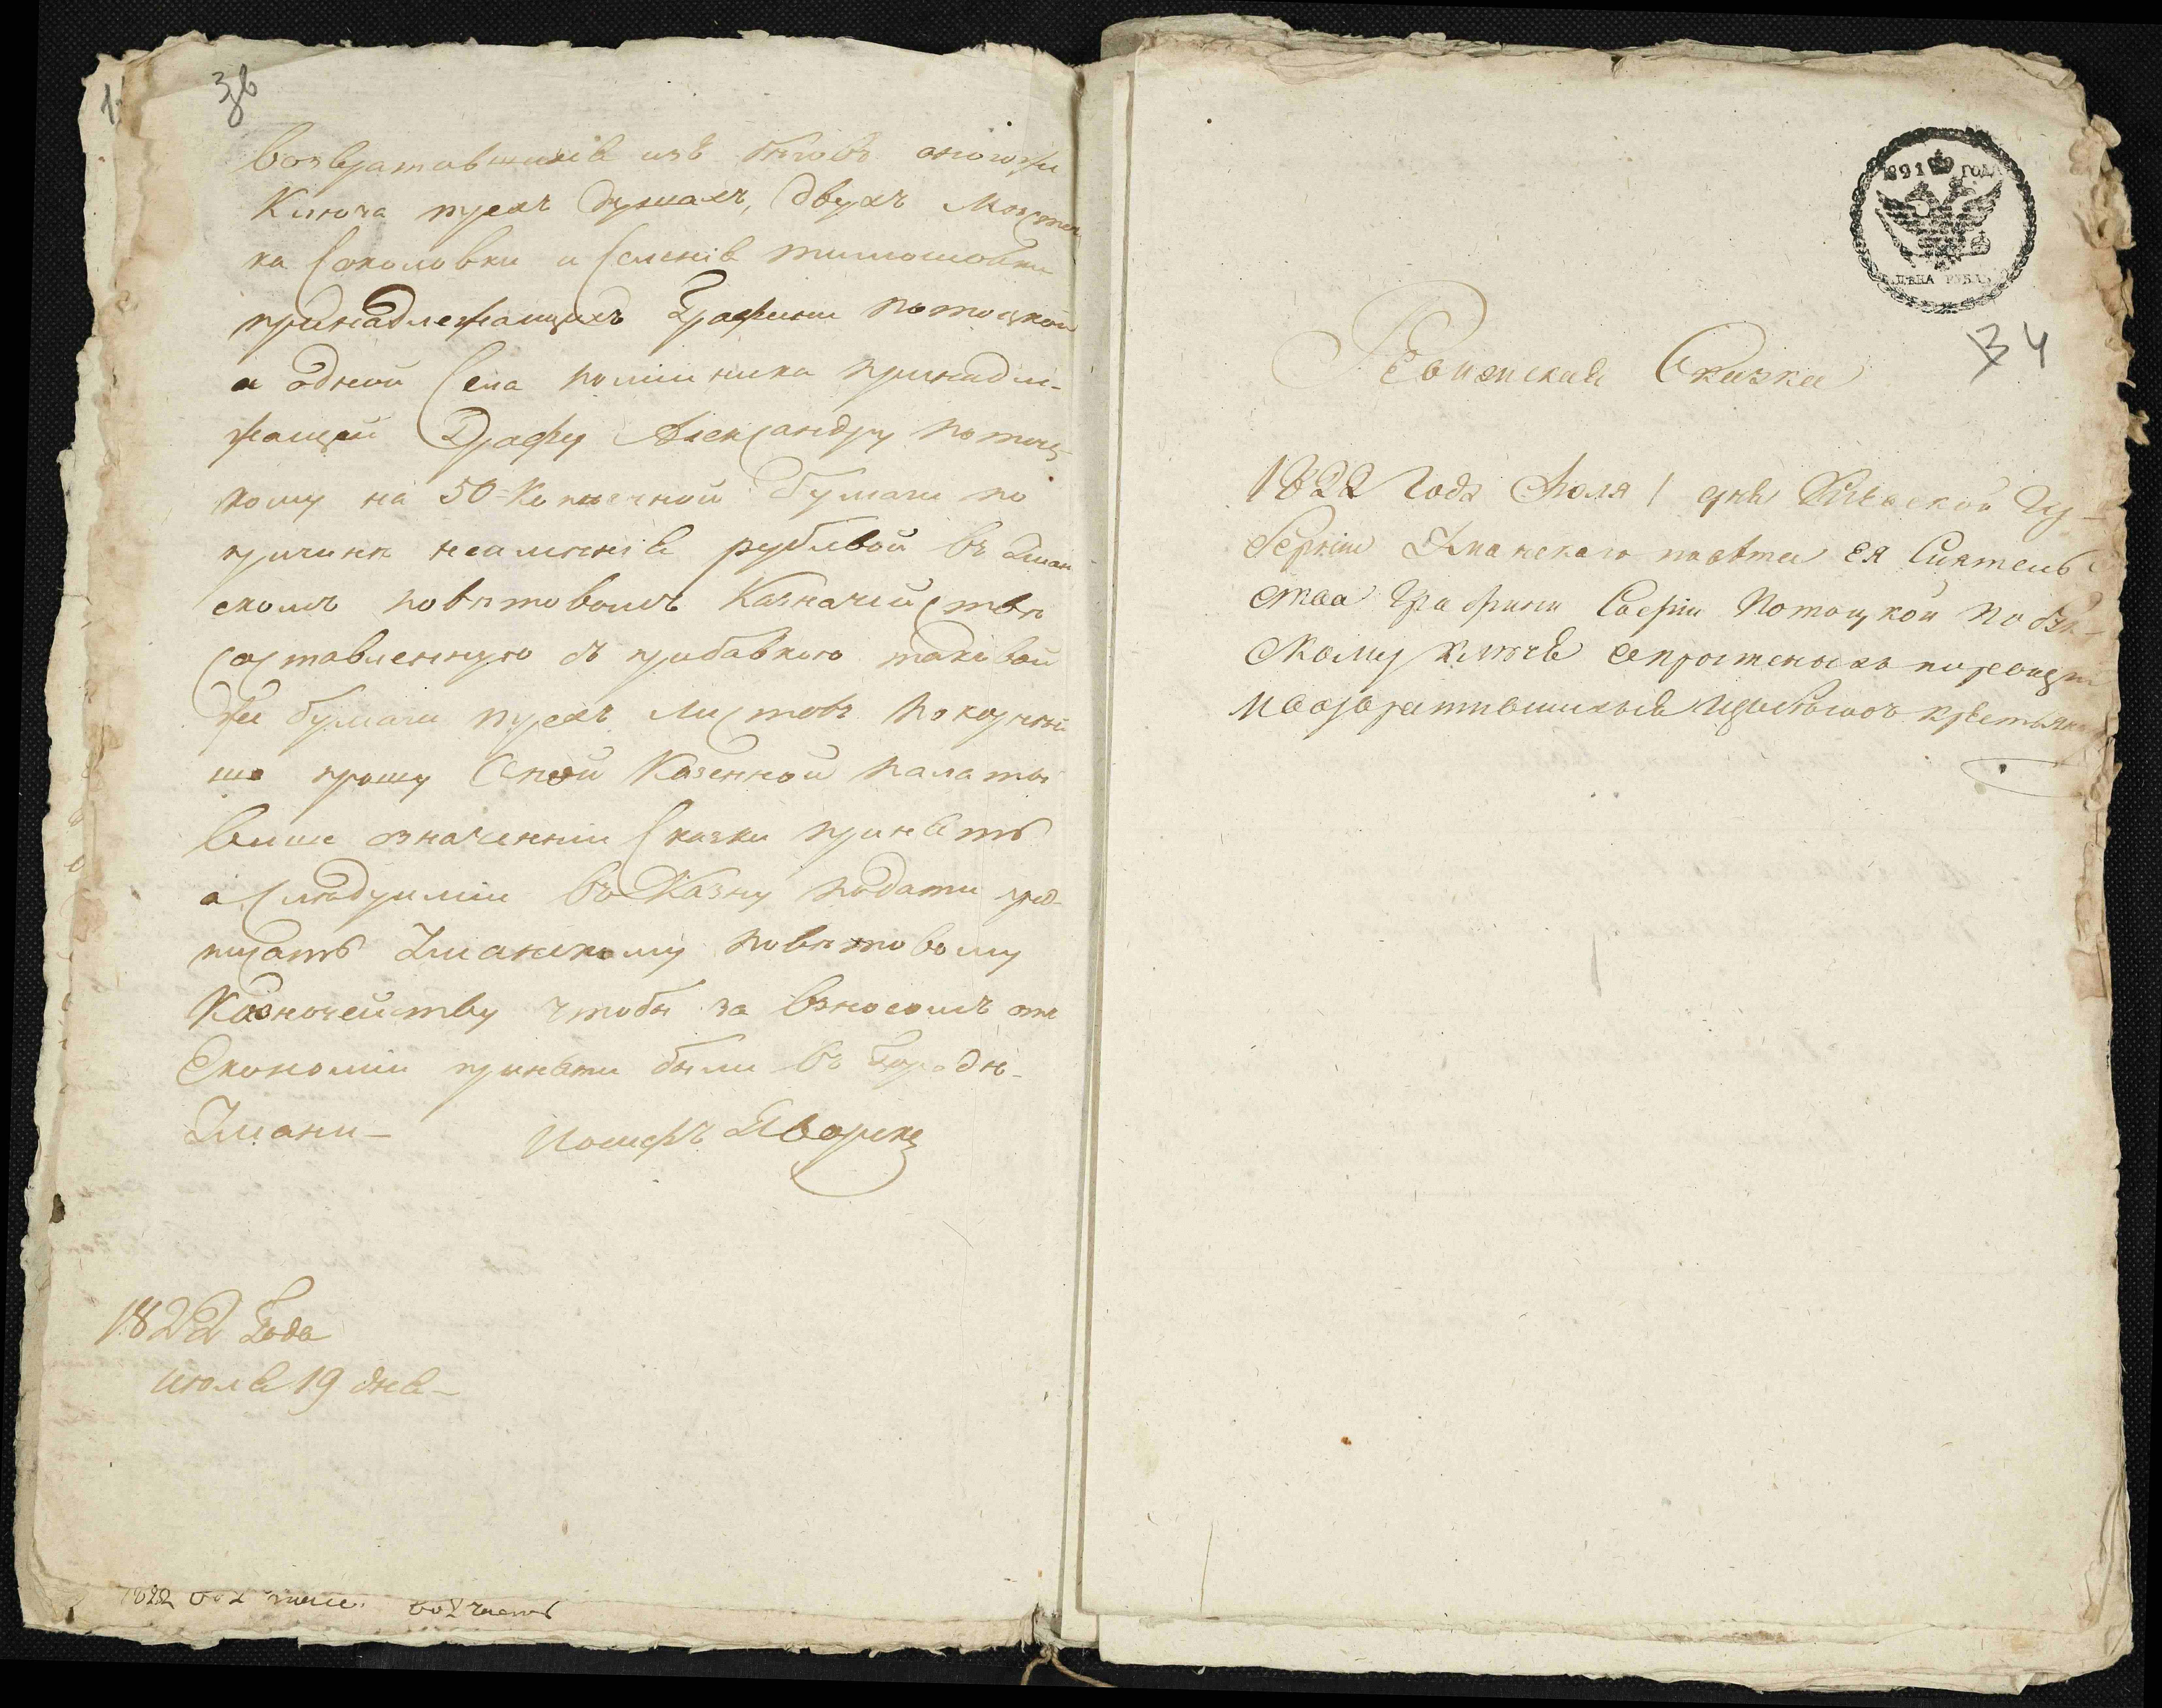 3в
возвратавшихся изъ бѣговъ оногожъ
Ключа трехъ душахъ, двухъ Местеч
ка Соколовки и Селенія
принадлежащихъ Графини Потоцкой
а одной Села принадле-
жащей Графу Александру Потоц
кому на 50-Копѣечной бумаги по
причинѣ неаименія рублевой въ Уман
скомъ повѣтовомъ Казначействѣ
составленную съ прибавкою таковой
же бумаги трехъ листовъ покорнѣй
ше прошу Оной Казенной Палаты
выше означенніи Сказки принять
а слѣдуиміи въ Казну подати пред-
писать Уманскому повѣтовому
Казночейству чтобы за взносомъ отъ
Економіи приняти были въ Городѣ-
Умани-
Иосифъ Яворски
1822 Года
июля 19 дня-
1821 ГОД
ЦѢНА РУБЛЬ
4
Ревизская Сказка
1822 Года Июля 1 дня Кіевской Гу-
берніи Уманскаго повѣта ея Сиятель
ства Графини Софіи Потоцкой
скому ключѣ
крестьян